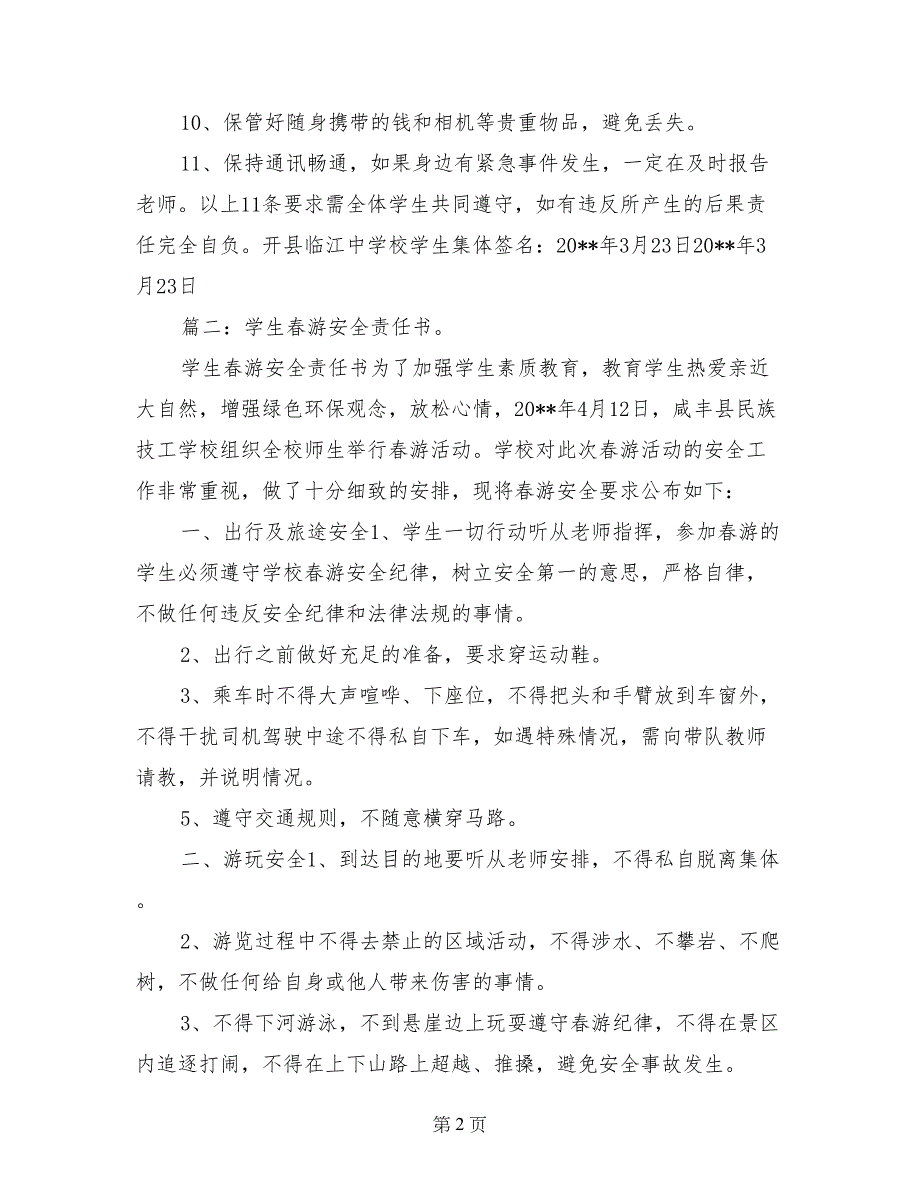 10、保管好随身携带的钱和相机等贵重物品，避免丢失。
11、保持通讯畅通，如果身边有紧急事件发生，一定在及时报告
老师。以上11条要求需全体学生共同遵守，如有违反所产生的后果责
任完全自负。开县临江中学校学生集体签名：20**年3月23日20**年3
月23日
篇二：学生春游安全责任书。
学生春游安全责任书为了加强学生素质教育，教育学生热爱亲近
大自然，增强绿色环保观念，放松心情，20**年4月12日，咸丰县民族
技工学校组织全校师生举行春游活动。学校对此次春游活动的安全工
作非常重视，做了十分细致的安排，现将春游安全要求公布如下：
一、出行及旅途安全1、学生一切行动听从老师指挥，参加春游的
学生必须遵守学校春游安全纪律，树立安全第一的意思，严格自律，
不做任何违反安全纪律和法律法规的事情。
2、出行之前做好充足的准备，要求穿运动鞋。
3、乘车时不得大声喧哗、下座位，不得把头和手臂放到车窗外，
不得干扰司机驾驶中途不得私自下车，如遇特殊情况，需向带队教师
请教，并说明情况。
5、遵守交通规则，不随意横穿马路。
二、游玩安全1、到达目的地要听从老师安排，不得私自脱离集体
。
2、游览过程中不得去禁止的区域活动，不得涉水、不攀岩、不爬
树，不做任何给自身或他人带来伤害的事情。
3、不得下河游泳，不到悬崖边上玩耍遵守春游纪律，不得在景区
内追逐打闹，不得在上下山路上超越、推搡，避免安全事故发生。
第 2 页